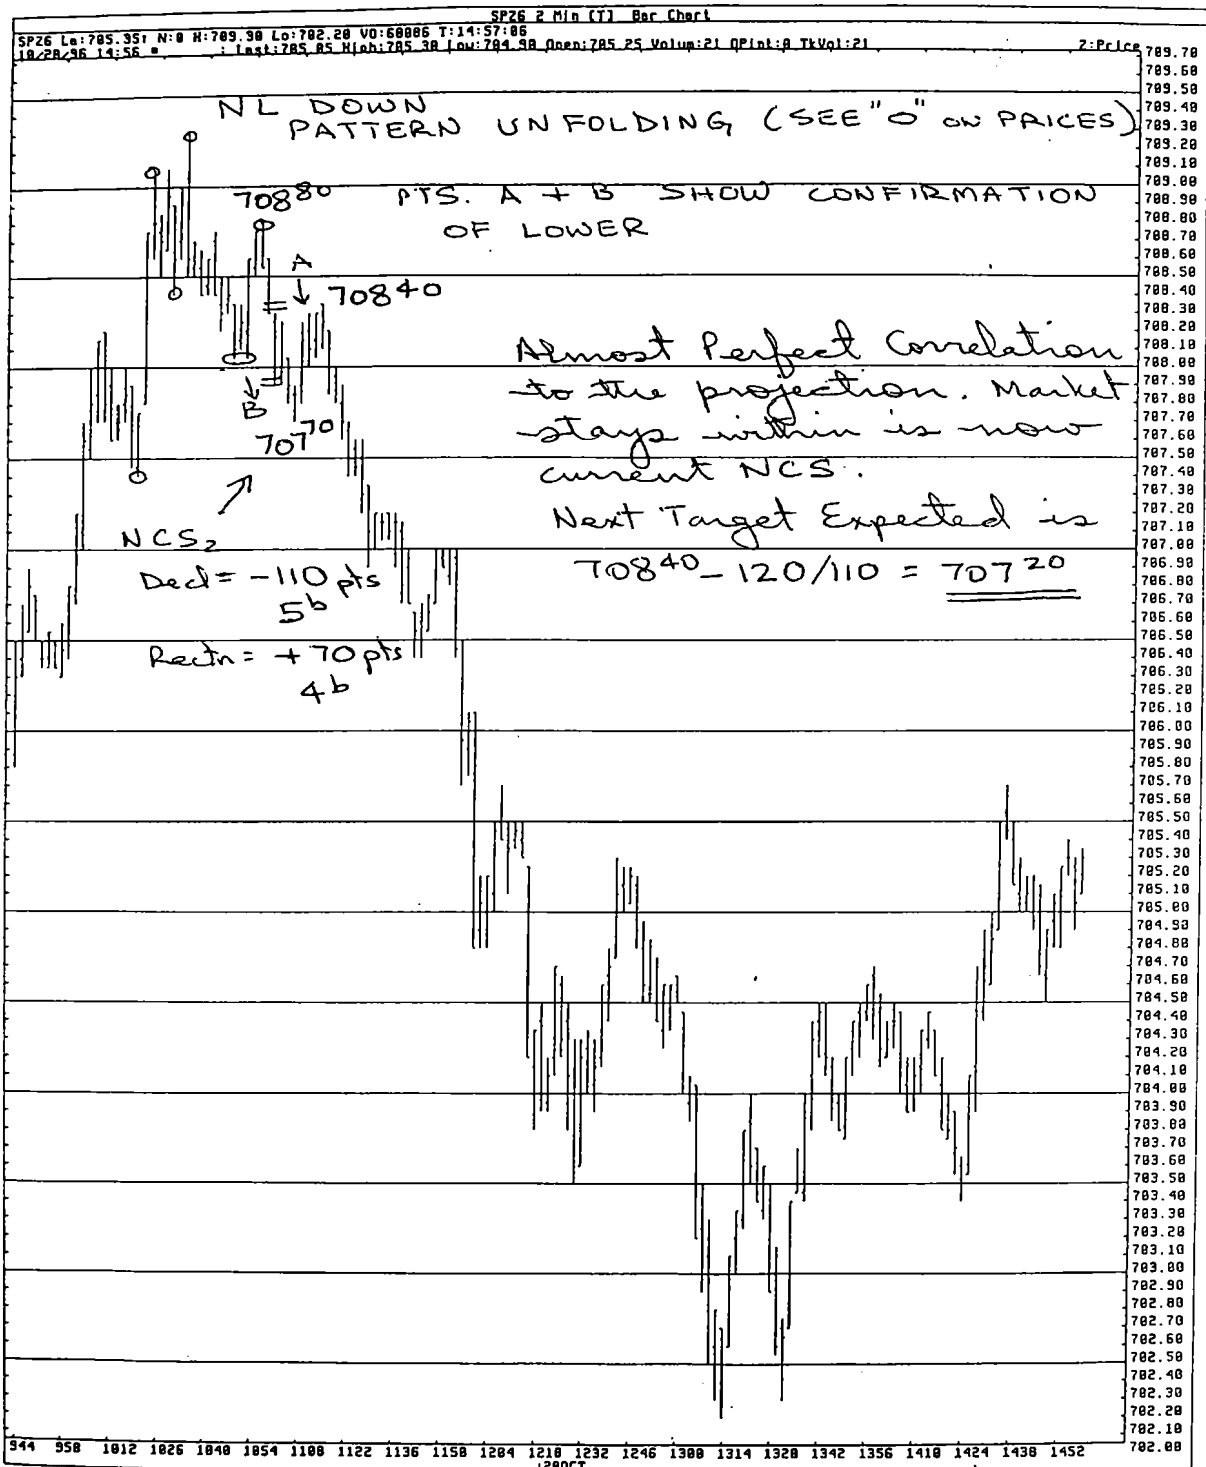 SPZ6 2 Min [T] Bar Chart
SPZ6 La:705.35↑ N:0 H:709.30 Lo:702.20 VO:60006 T:14:57:06
10/28/96 14:56 : Last:705.05 High:705.30 Low:704.90 Open:705.25 Volum:21 OPInt:0 TkVol:21 Z:Price
NL DOWN
PATTERN UNFOLDING (SEE "O" ON PRICES)
708 80 PTS. A + B SHOW CONFIRMATION
OF LOWER
A
708 40
Almost Perfect Correlation
to the projection. Market
B
stays within is now
707 70
current NCS.
Next Target Expected is
NCS2
708 40 - 120/110 = 707 20
Decl = -110 pts
5b
Rectn = +70 pts
4b
709.70
709.60
709.50
709.40
709.30
709.20
709.10
709.00
708.90
708.80
708.70
708.60
708.50
708.40
708.30
708.20
708.10
708.00
707.90
707.80
707.70
707.60
707.50
707.40
707.30
707.20
707.10
707.00
706.90
706.80
706.70
706.60
706.50
706.40
706.30
706.20
706.10
706.00
705.90
705.80
705.70
705.60
705.50
705.40
705.30
705.20
705.10
705.00
704.90
704.80
704.70
704.60
704.50
704.40
704.30
704.20
704.10
704.00
703.90
703.80
703.70
703.60
703.50
703.40
703.30
703.20
703.10
703.00
702.90
702.80
702.70
702.60
702.50
702.40
702.30
702.20
702.10
702.00
944 958 1012 1026 1040 1054 1108 1122 1136 1150 1204 1218 1232 1246 1300 1314 1328 1342 1356 1410 1424 1438 1452